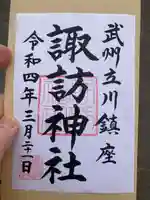 武州立川鎮座
諏訪神社
令和四年三月二十一日